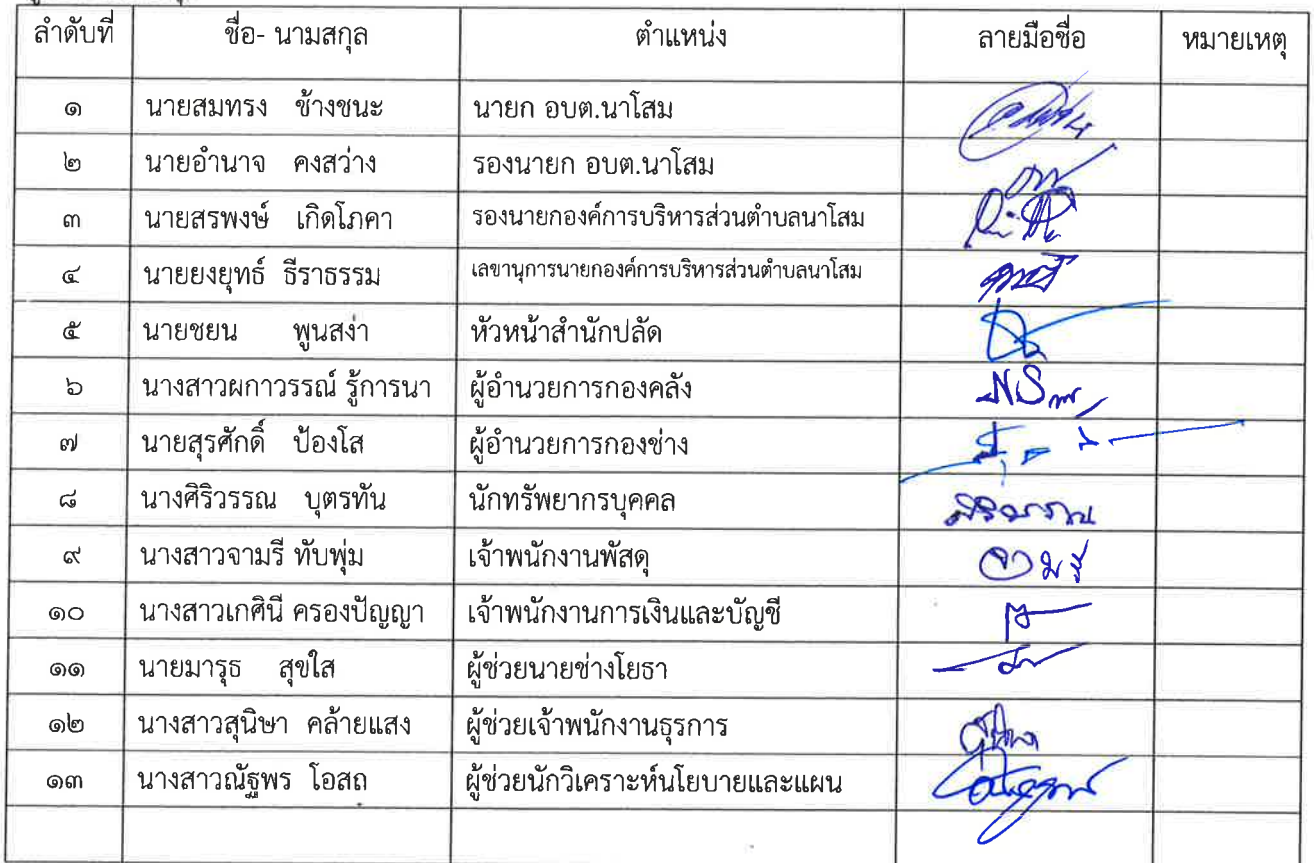 ลำดับที่ ชื่อ- นามสกุล ตำแหน่ง ลายมือชื่อ หมายเหตุ
๑ นายสมทรง ช้างชนะ นายก อบต.นาโสม
๒ นายอำนาจ คงสว่าง รองนายก อบต.นาโสม
๓ นายสรพงษ์ เกิดโภคา รองนายกองค์การบริหารส่วนตำบลนาโสม
๔ นายยงยุทธ์ ธีราธรรม เลขานุการนายกองค์การบริหารส่วนตำบลนาโสม
๕ นายชยน พูนสง่า หัวหน้าสำนักปลัด
๖ นางสาวผกาวรรณ์ รู้การนา ผู้อำนวยการกองคลัง
๗ นายสุรศักดิ์ ป้องโส ผู้อำนวยการกองช่าง
๘ นางศิริวรรณ บุตรทัน นักทรัพยากรบุคคล ศิริวรรณ
๙ นางสาวจามรี ทับพุ่ม เจ้าพนักงานพัสดุ จามรี
๑๐ นางสาวเกศินี ครองปัญญา เจ้าพนักงานการเงินและบัญชี
๑๑ นายมารุธ สุขใส ผู้ช่วยนายช่างโยธา
๑๒ นางสาวสุนิษา คล้ายแสง ผู้ช่วยเจ้าพนักงานธุรการ
๑๓ นางสาวณัฐพร โอสถ ผู้ช่วยนักวิเคราะห์นโยบายและแผน